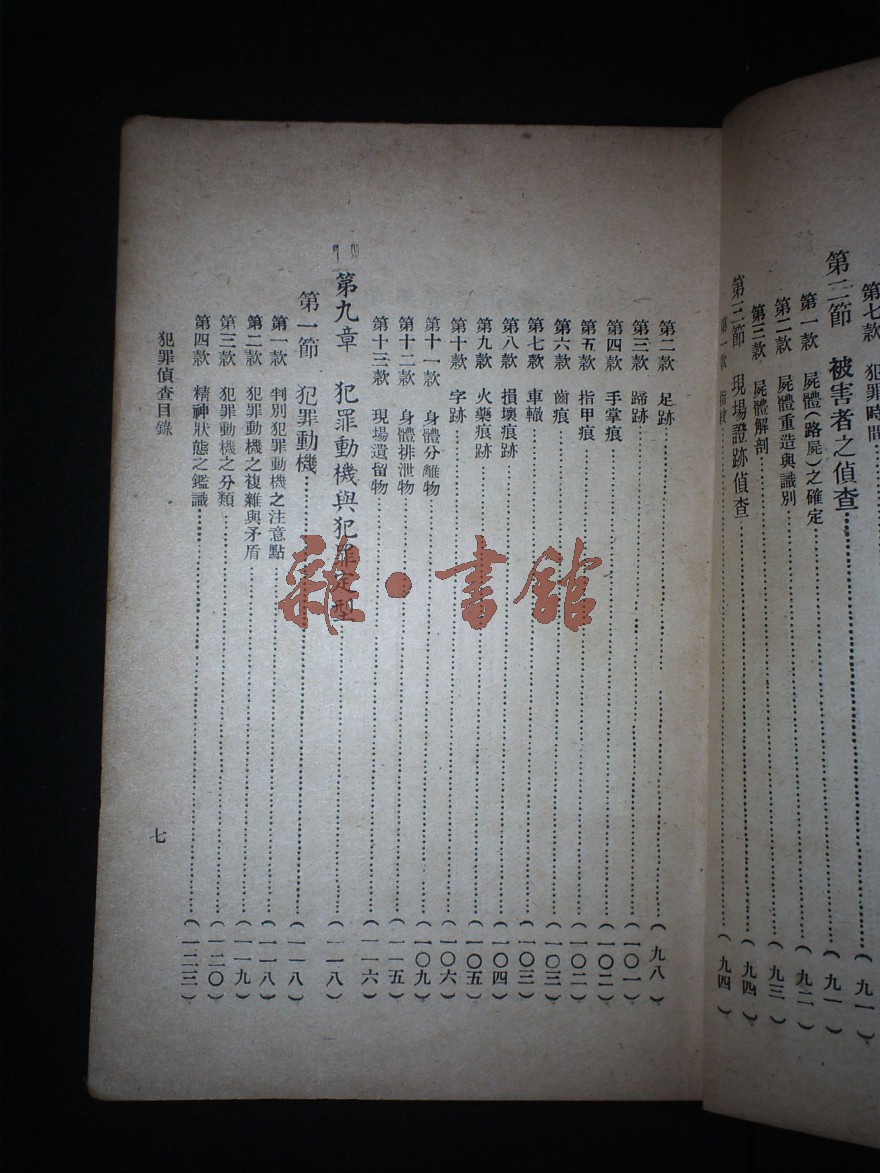 第七款　犯罪時間……（九一）
第二節　被害者之偵查……（九一）
第一款　屍體（路屍）之確定……（九二）
第二款　屍體重造與識別……（九三）
第三款　屍體解剖……（九四）
第三節　現場證跡偵查
第一款　指紋……（九四）
第二款　足跡……（九八）
第三款　蹄跡……（一〇一）
第四款　手掌痕……（一〇二）
第五款　指甲痕……（一〇二）
第六款　齒痕……（一〇三）
第七款　車轍……（一〇三）
第八款　損壞痕跡……（一〇四）
第九款　火藥痕跡……（一〇五）
第十款　字跡……（一〇六）
第十一款　身體分離物……（一〇九）
第十二款　身體排泄物……（一一五）
第十三款　現場遺留物……（一一六）
第九章　犯罪動機與犯罪定型……（一一八）
第一節　犯罪動機……（一一八）
第一款　判別犯罪動機之注意點……（一一八）
第二款　犯罪動機之複雜與矛盾……（一一九）
第三款　犯罪動機之分類……（一二〇）
第四款　精神狀態之鑑識……（一二三）
犯罪偵查目錄
七
雜·書館